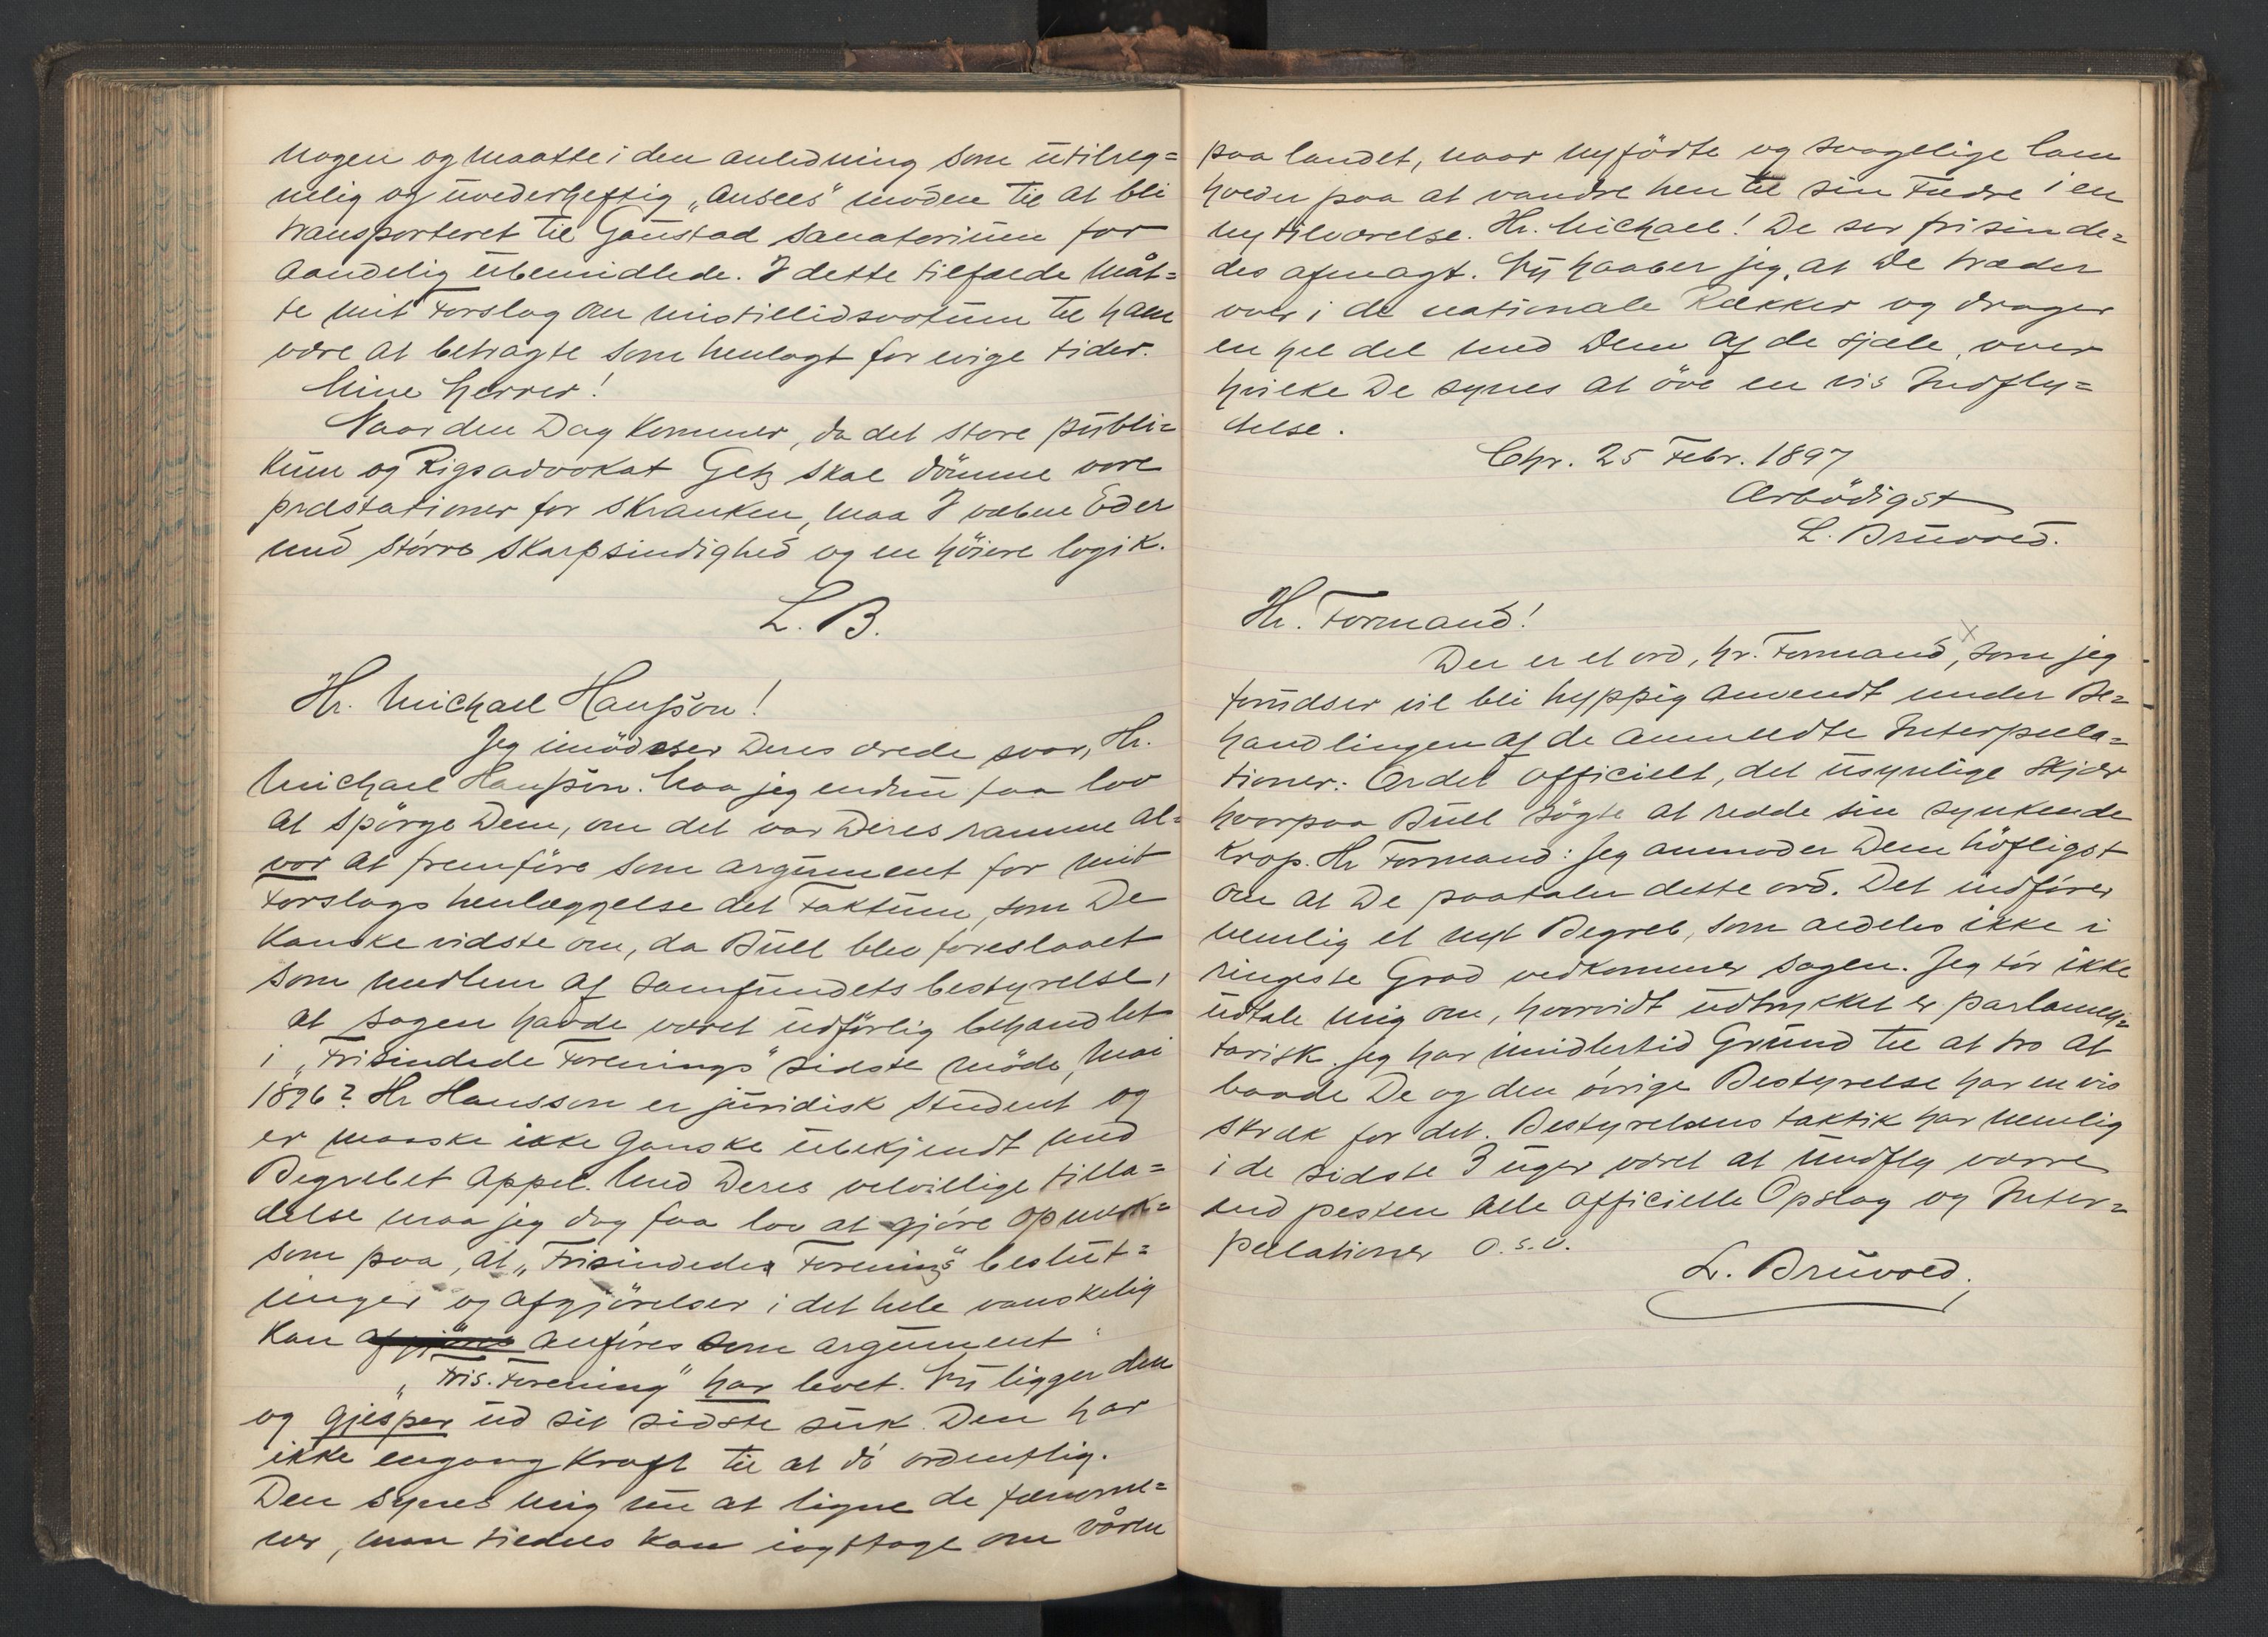 nogen og maatte i den anledning som utilreg=
nelig og uvederheftig „ansees" moden til at bli
transporteret til Gaustad sanatorium for
aandelig ubemidlede. I dette tilfælde måt=
te mit Forslag om mistillidsvotum til ham
være at betragte som henlagt for evige tider.
Mine herrer!
Naar den Dag kommer, da det store publi=
kum og Rigsadvokat Getz skal dömme vore
præstationer for skranken, maa I væbne Eder
med större skarpsindighed og en höiere logik.
L. B.
Hr. Michael Hansson!
Jeg imödeser Deres ærede svar, Hr.
Michael Hansson. Maa jeg endnu faa lov
at spörge Dem, om det var Deres ramme al=
vor at fremföre som argument for mit
Forslags henlæggelse det Faktum, som De
kanske vidste om, da Bull blev foreslaaet
som medlem af Samfundets bestyrelse,
at sagen havde været udförlig behandlet
i „Frisindede Forenings" sidste möde, Mai
1896? Hr Hansson er juridisk student og
er maaske ikke ganske ubekjendt med
Begrebet appel. Med Deres velvillige tilla=
delse maa jeg dog faa lov at gjöre opmærk=
som paa, at „Frisindedes Forening's" beslut=
ninger og afgjörelser i det hele vanskelig
kan afgjöres anföres som argument
„Fris. Forening" har levet. Nu ligger den
og gjesper ud sit sidste suk. Den har
ikke engang Kraft til at dö ordentlig.
Den synes mig nu at ligne de fænome=
ner, man tildels kan iagttage om våren
paa landet, naar nyfödte og svagelige lam
holder paa at vandre hen til sin Fædre i en
ny tilværelse. Hr. Michael! De ser frisinde=
des afmagt. Nu haaber jeg, at De træder
over i de nationale Rækker og drager
en hel del med Dem af de sjæle, over
hvilke De synes at öve en vis Indfly=
delse.
Chr. 25 Febr. 1897
Ærbödigst
L. Bruvold.
Hr. Formand!
Der er et ord, hr. Formand, som jeg
forudser vil bli hyppig anvendt under Be=
handlingen af de anmeldte Interpella=
tioner: Ordet officielt, det usynlige skjær
hvorpaa Bull sögte at redde sin synkende
krop. Hr Formand: Jeg anmoder Dem höfligst
om at De paataler dette ord. Det indförer
nemlig et nyt Begreb, som aldeles ikke i
ringeste Grad vedkommer sagen. Jeg tör ikke
udtale mig om, hvorvidt udtrykket er parlamen=
tarisk. Jeg har imidlertid Grund til at tro at
baade De og den övrige Bestyrelse har en vis
skræk for det. Bestyrelsens taktik har nemlig
i de sidste 3 uger været at undfly værre
end pesten alle officielle Opslag og Inter=
pellationer o.s.v.
L. Bruvold.